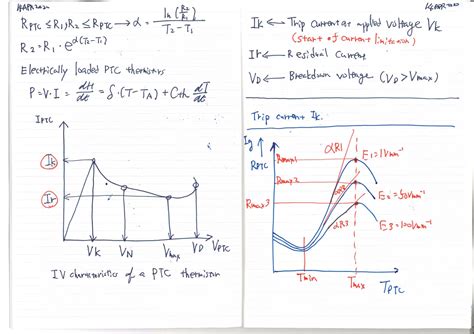 R_PTC ≤ R1, R2 ≤ R_PTC → α = ln(R2/R1) / (T2 - T1)
R2 = R1 · e^α(T2-T1)
Electrically loaded PTC thermistors
P = V·I = dH/dt = δ·(T-TA) + Cth dT/dt
IPTC
Ik
Ir
VK VN Vmax VD VPTC
IV characteristics of a PTC thermistor
IK ← Trip current at applied voltage VK
(start of current limitation)
Ir ← Residual current
VD ← Breakdown voltage (VD > Vmax)
Trip current IK.
lg
RPTC
αR1
Rmax1
E1 = 1Vmm⁻¹
Rmax2
αR2
E2 = 50Vmm⁻¹
Rmax3
αR3
E3 = 100Vmm⁻¹
Tmin
Tmax
TPTC